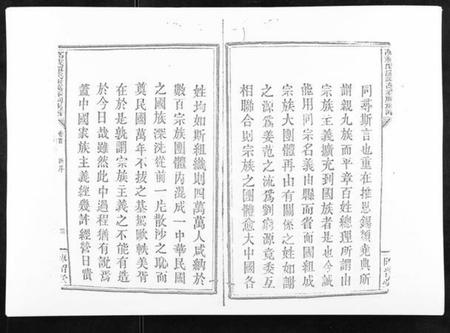 同尋斯言也重在推恩錫類堯典所
謂親九族而平章百姓總理所謂由
宗族主義擴充到國族者是也今誠
能用同宗名義由縣而省而國組成
宗族大團體再由有關係之姓如謝
之源為姜范之流為劉窮源竟委互
相聯合則宗族之團體愈大中國各
姓均如斯組織則四萬萬人咸納於
數百宗族團體內混成一中華民國
之國族深洗從前一片散沙之恥而
奠民國萬年不拔之基礎歐帙美胥
在於是孰謂宗族主義之不能有造
於今日哉雖然此中過程猶有說焉
蓋中國家族主義經幾許經營日積